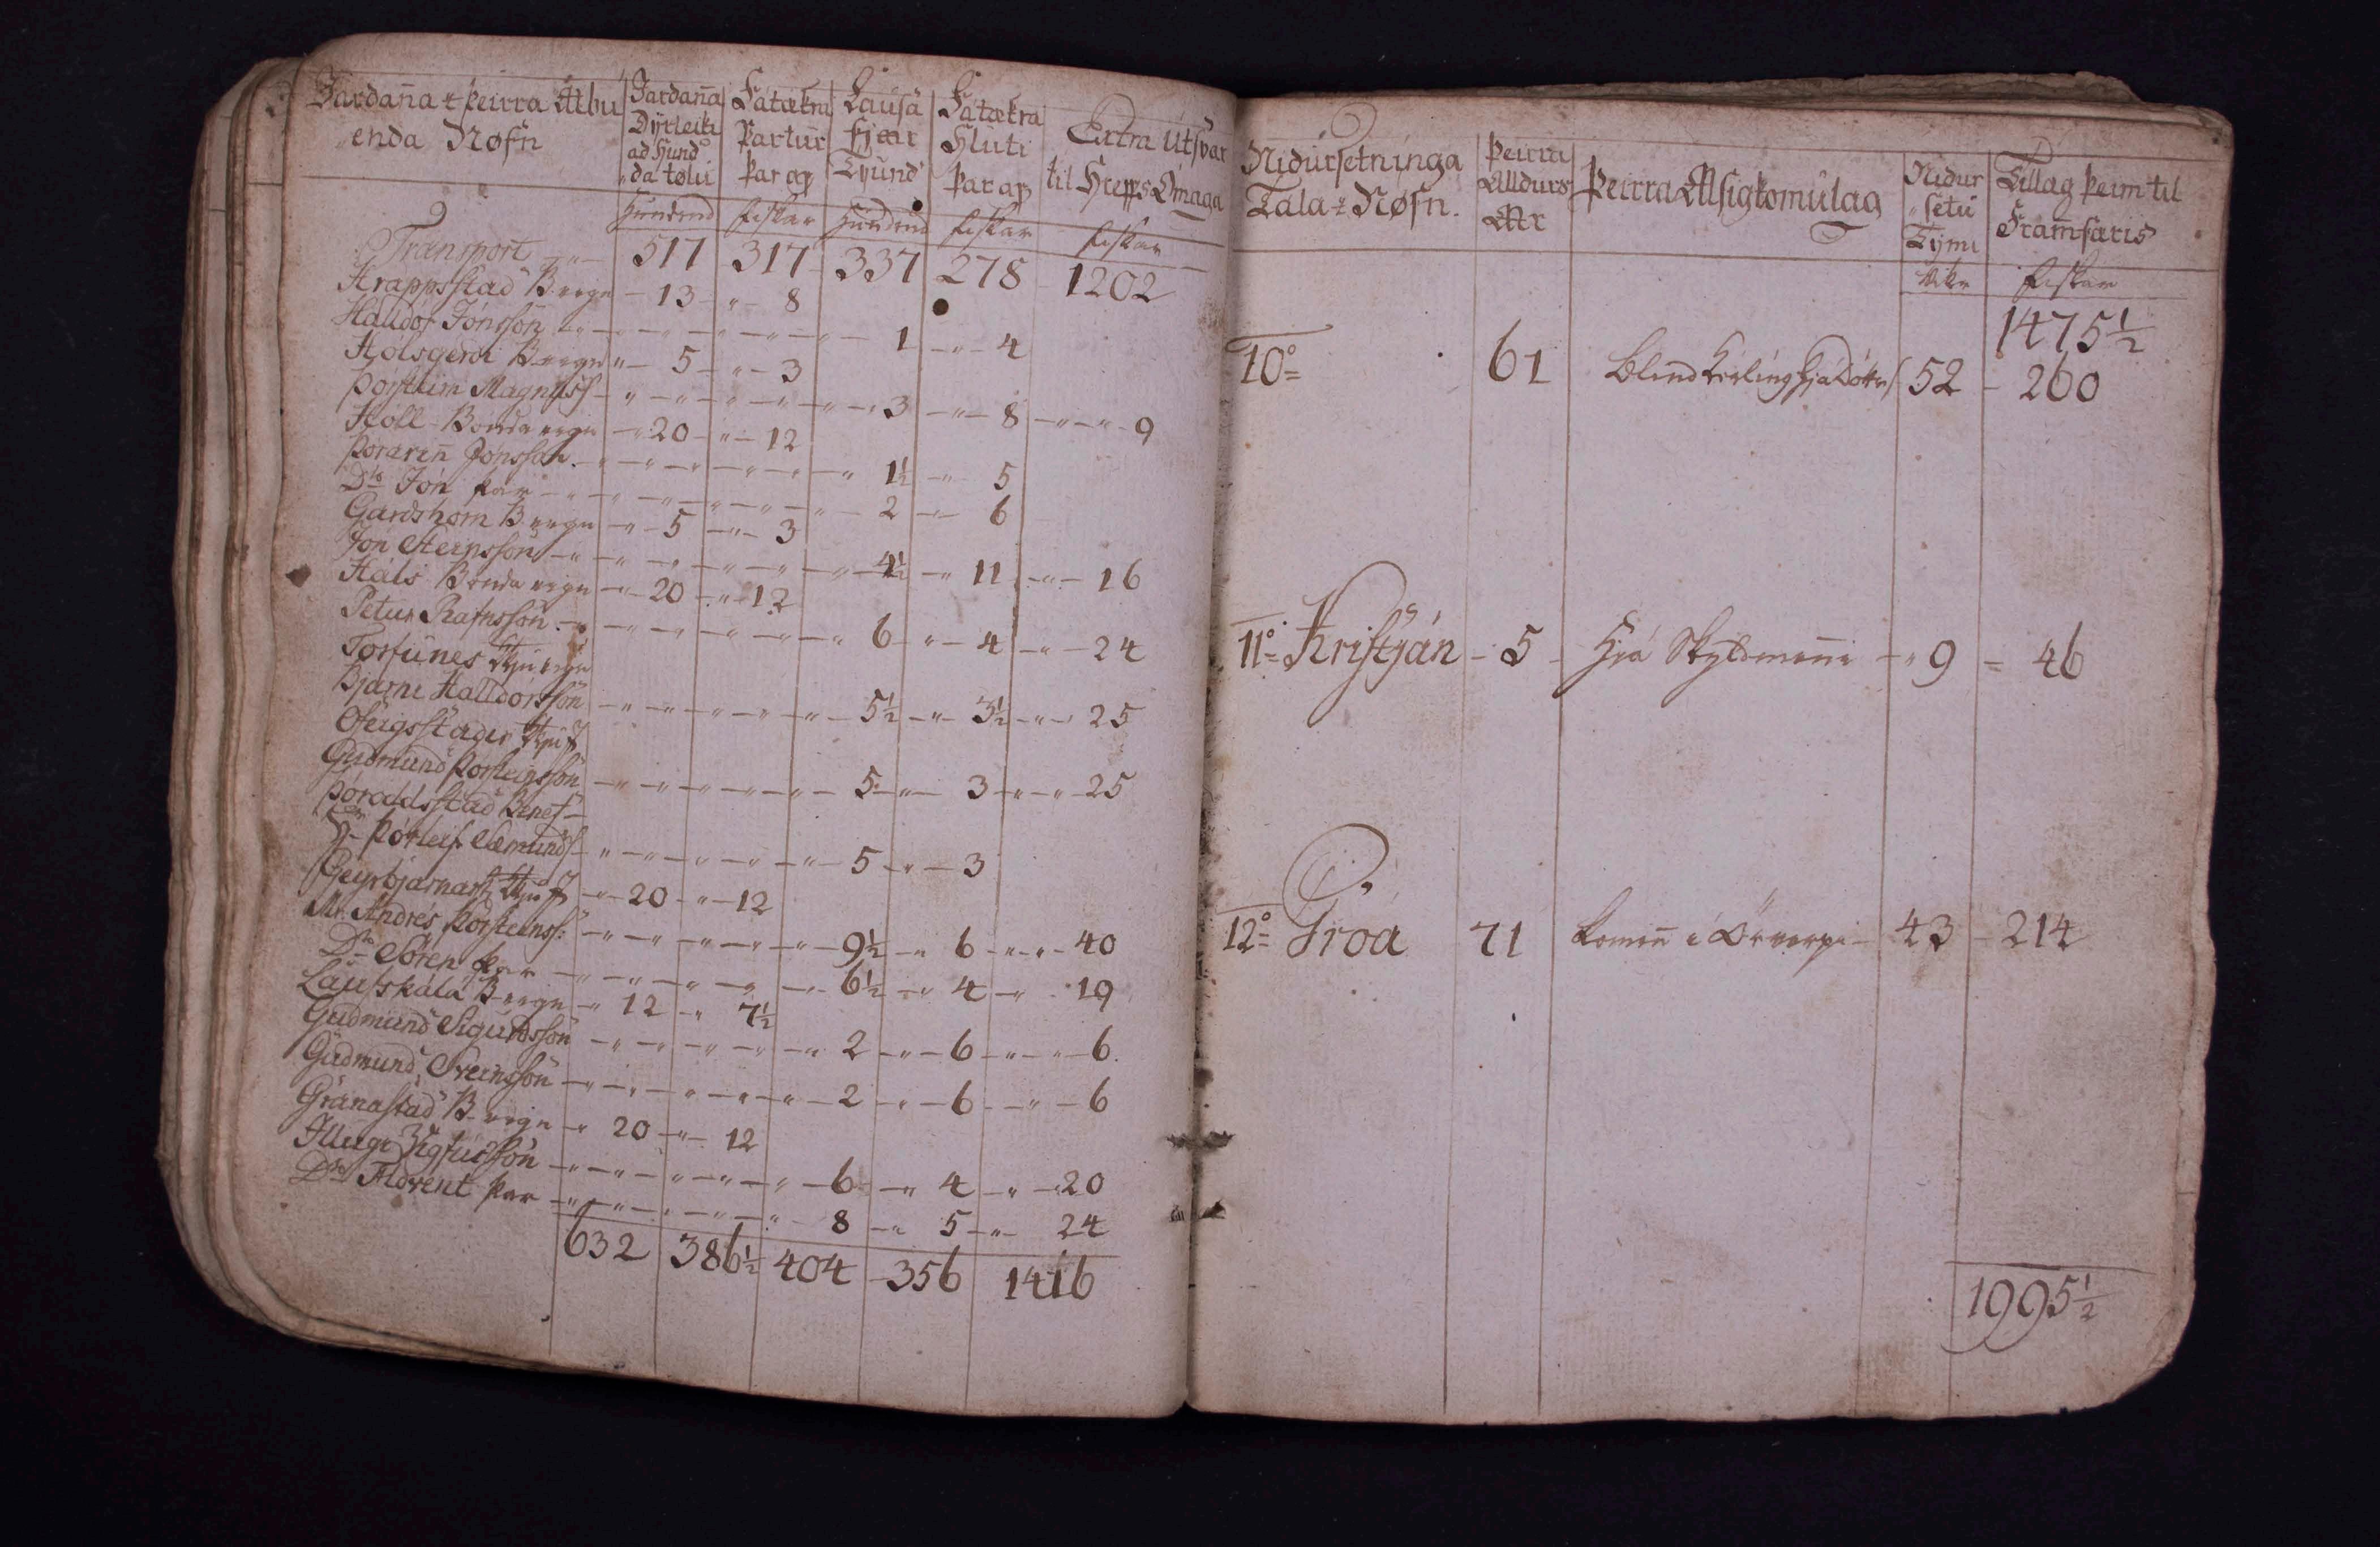 Jardaña & þeirra Ábu
enda Nøfn
Jardaña
Dyrleiki
ad Hund
da tølu
Fatækra
Partur
Þar af
Lausa
Fjær
Tyund
Fatækra
Hluti
Þar af
Extra Utsvar
til Hrepps Omaga
Hundrud fiskar Hundrud fiskar fiskar
Transport 517 317 337 278 1202
Hrappsstad B. eign 13 8
Halldór Jónsson 1 4
Hólsgerdi B. eign 5 3
Þorsteirn Magnuss 3 8 9
Holl Bonda eign 20 12
Þorariñ Jonsson 1½ 5
Do Jón þar 2 6
Gardshorn B. eign 5 3
Jón Steinsson 4½ 11 16
Háls Bonda eign 20 12
Petur Rafnsson 6 4 24
Torfunes
Bjarni Halldorsson 5½ 3½ 25
Ofeigsstader
Gudmund Þorsteinsson 5 3 25
Þóroddsstad Benef
Þorleif Sæmunds 5 3
Geyrbjarnarst 20 12
Mr Andrés Þorsteinss: 9½ 6 40
Do Sören þar 6½ 4 19
Laufskala B. eign 12 7½
Gudmund Sigurdsson 2 6 6
Gudmund Sveinsson 2 6 6
Granastad B. eign 20 12
Illugi Zigfusson 6 4 20
Do Florent þar 8 5 24
632 386½ 404 356 1416
Nidursetninga
Tala & Nøfn.
Þeirra
Alldurs
Ár
Þeirra Ásigkomulag
Nidur
setu
Tymi
Tillag þeim til
Framfæris
fiskar
1475½
10o 61 Blind Kérling hjá Dóttr 52 260
11o Kristján 5 Hjá Skyldmenni 9 46
12o Gróa 71 Komin i Örverpi 43 214
1995½